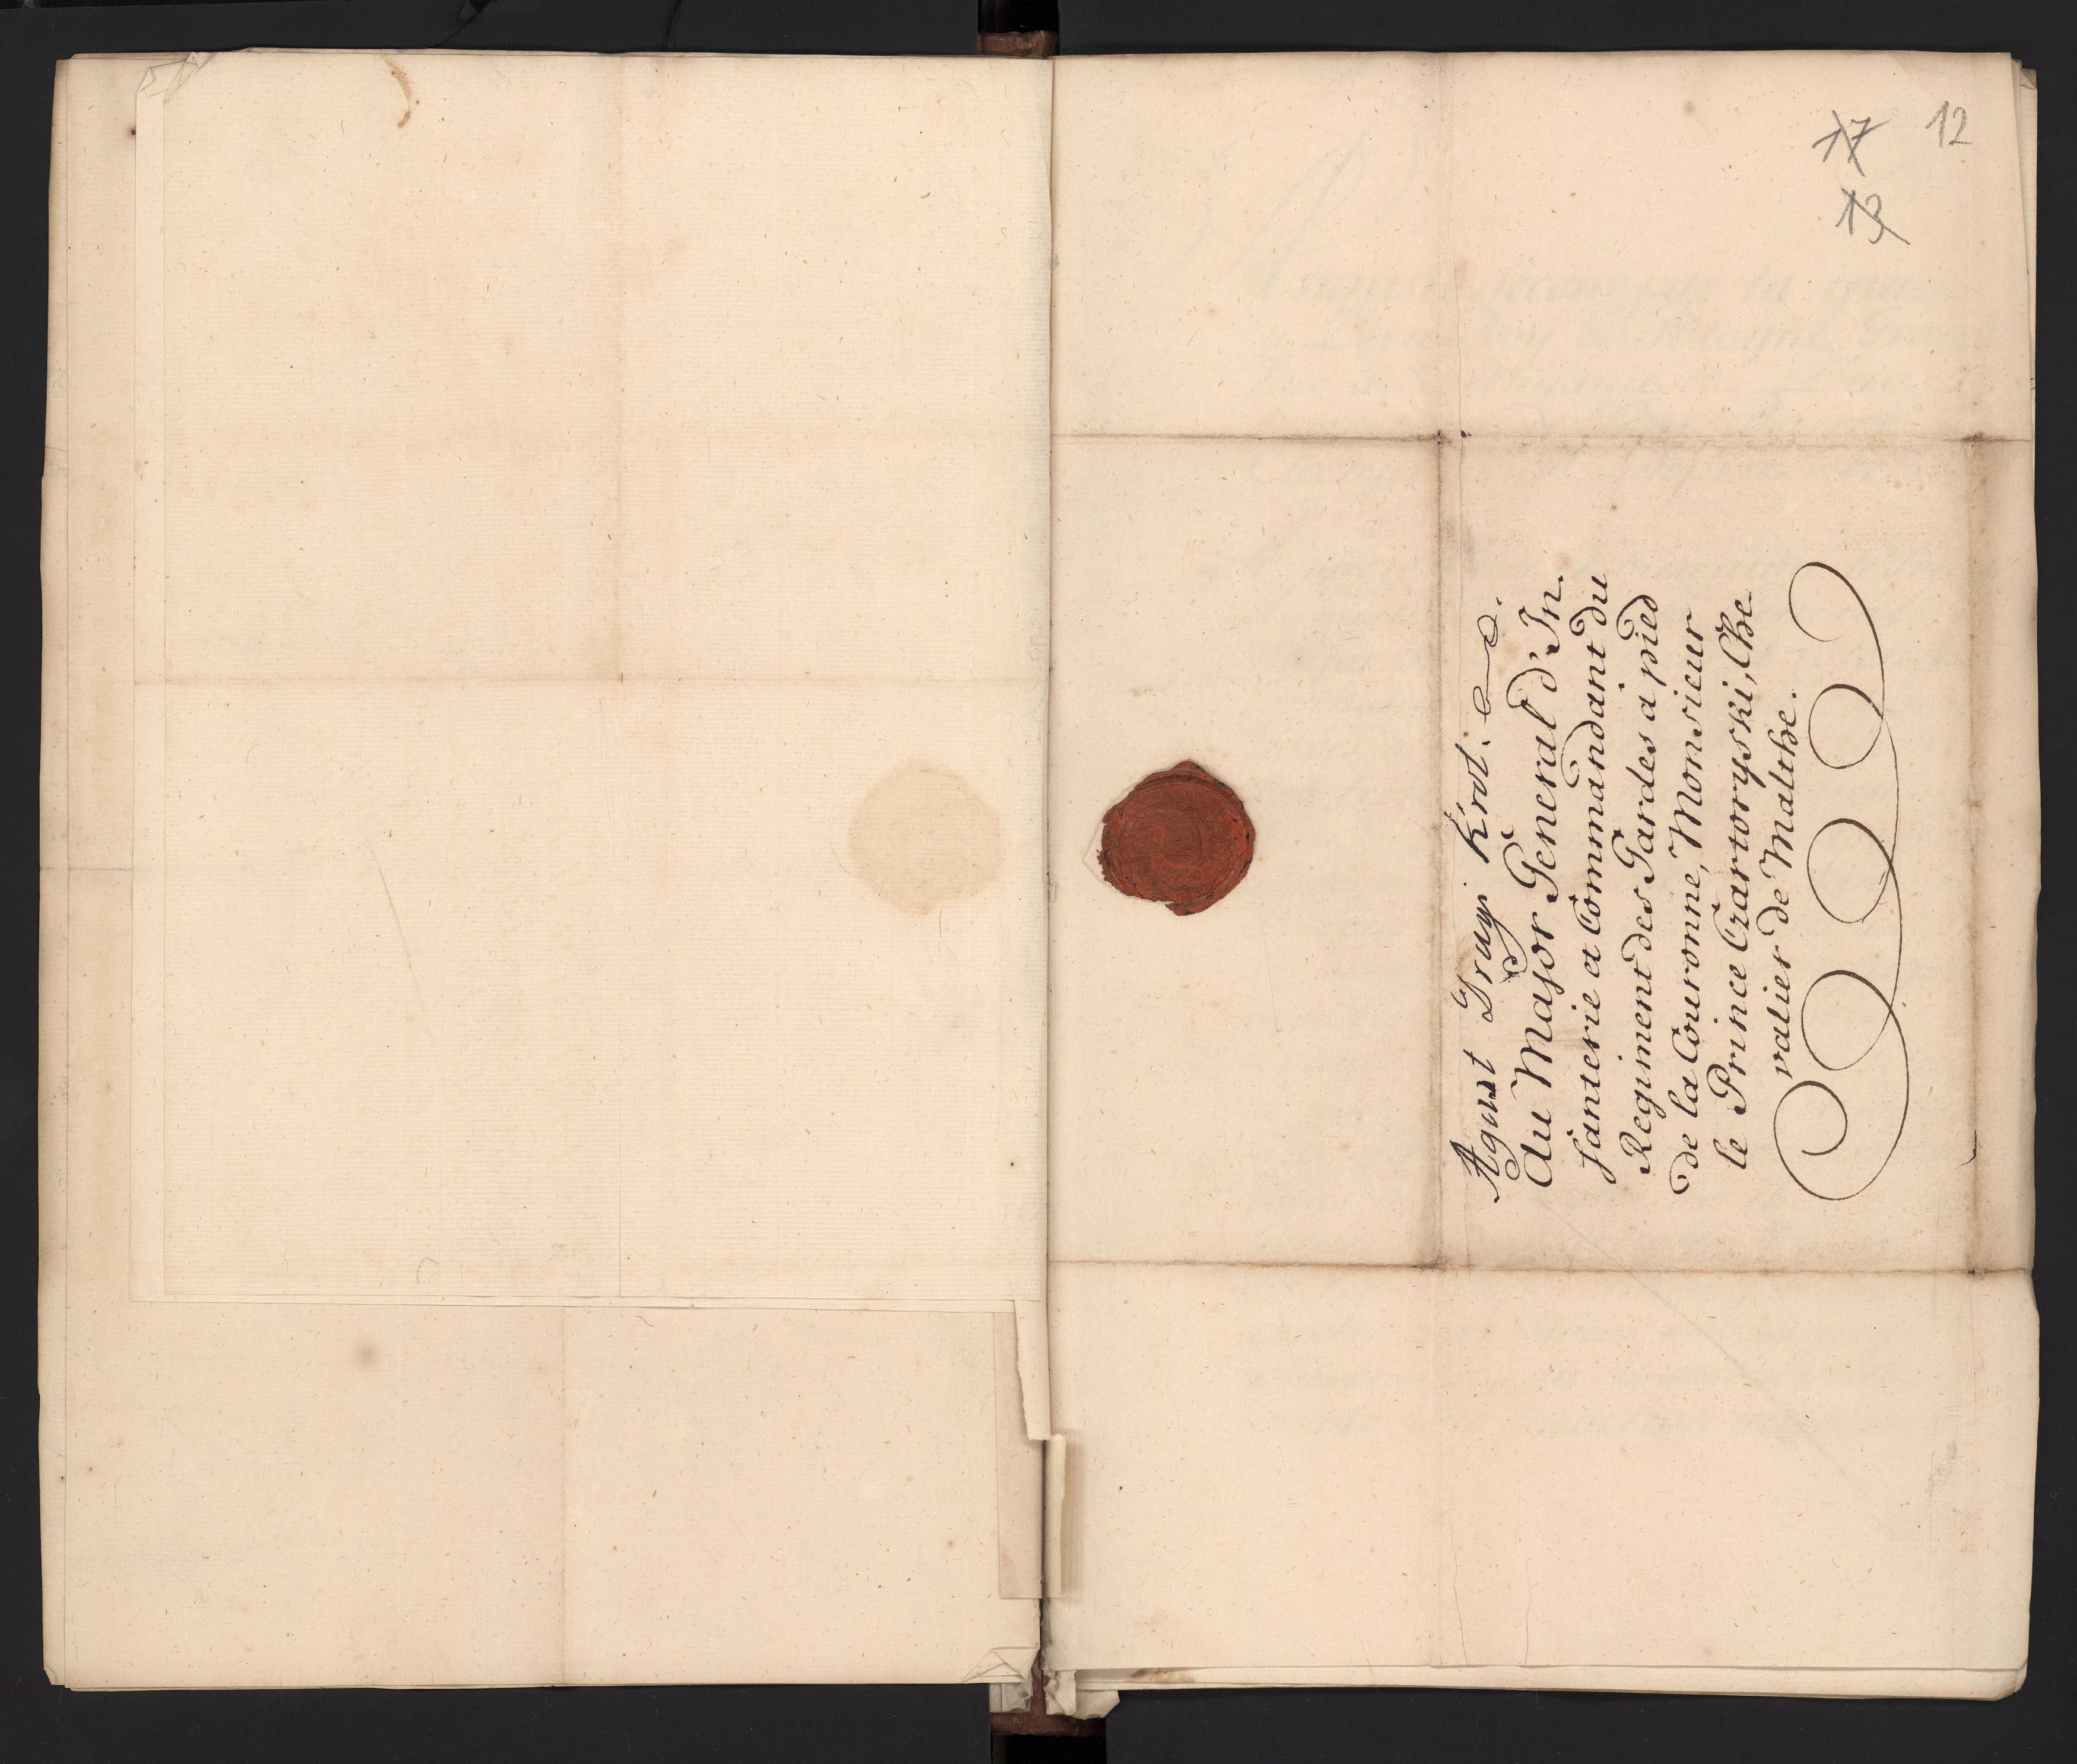 12
17
13
Agust Drugi Krol.
Au Major General d'In.
fanterie et Commandant du
Regiment des Gardes a pied
de la Couronne, Monsieur
le Prince Czartoryski, Che.
valier de Malthe.